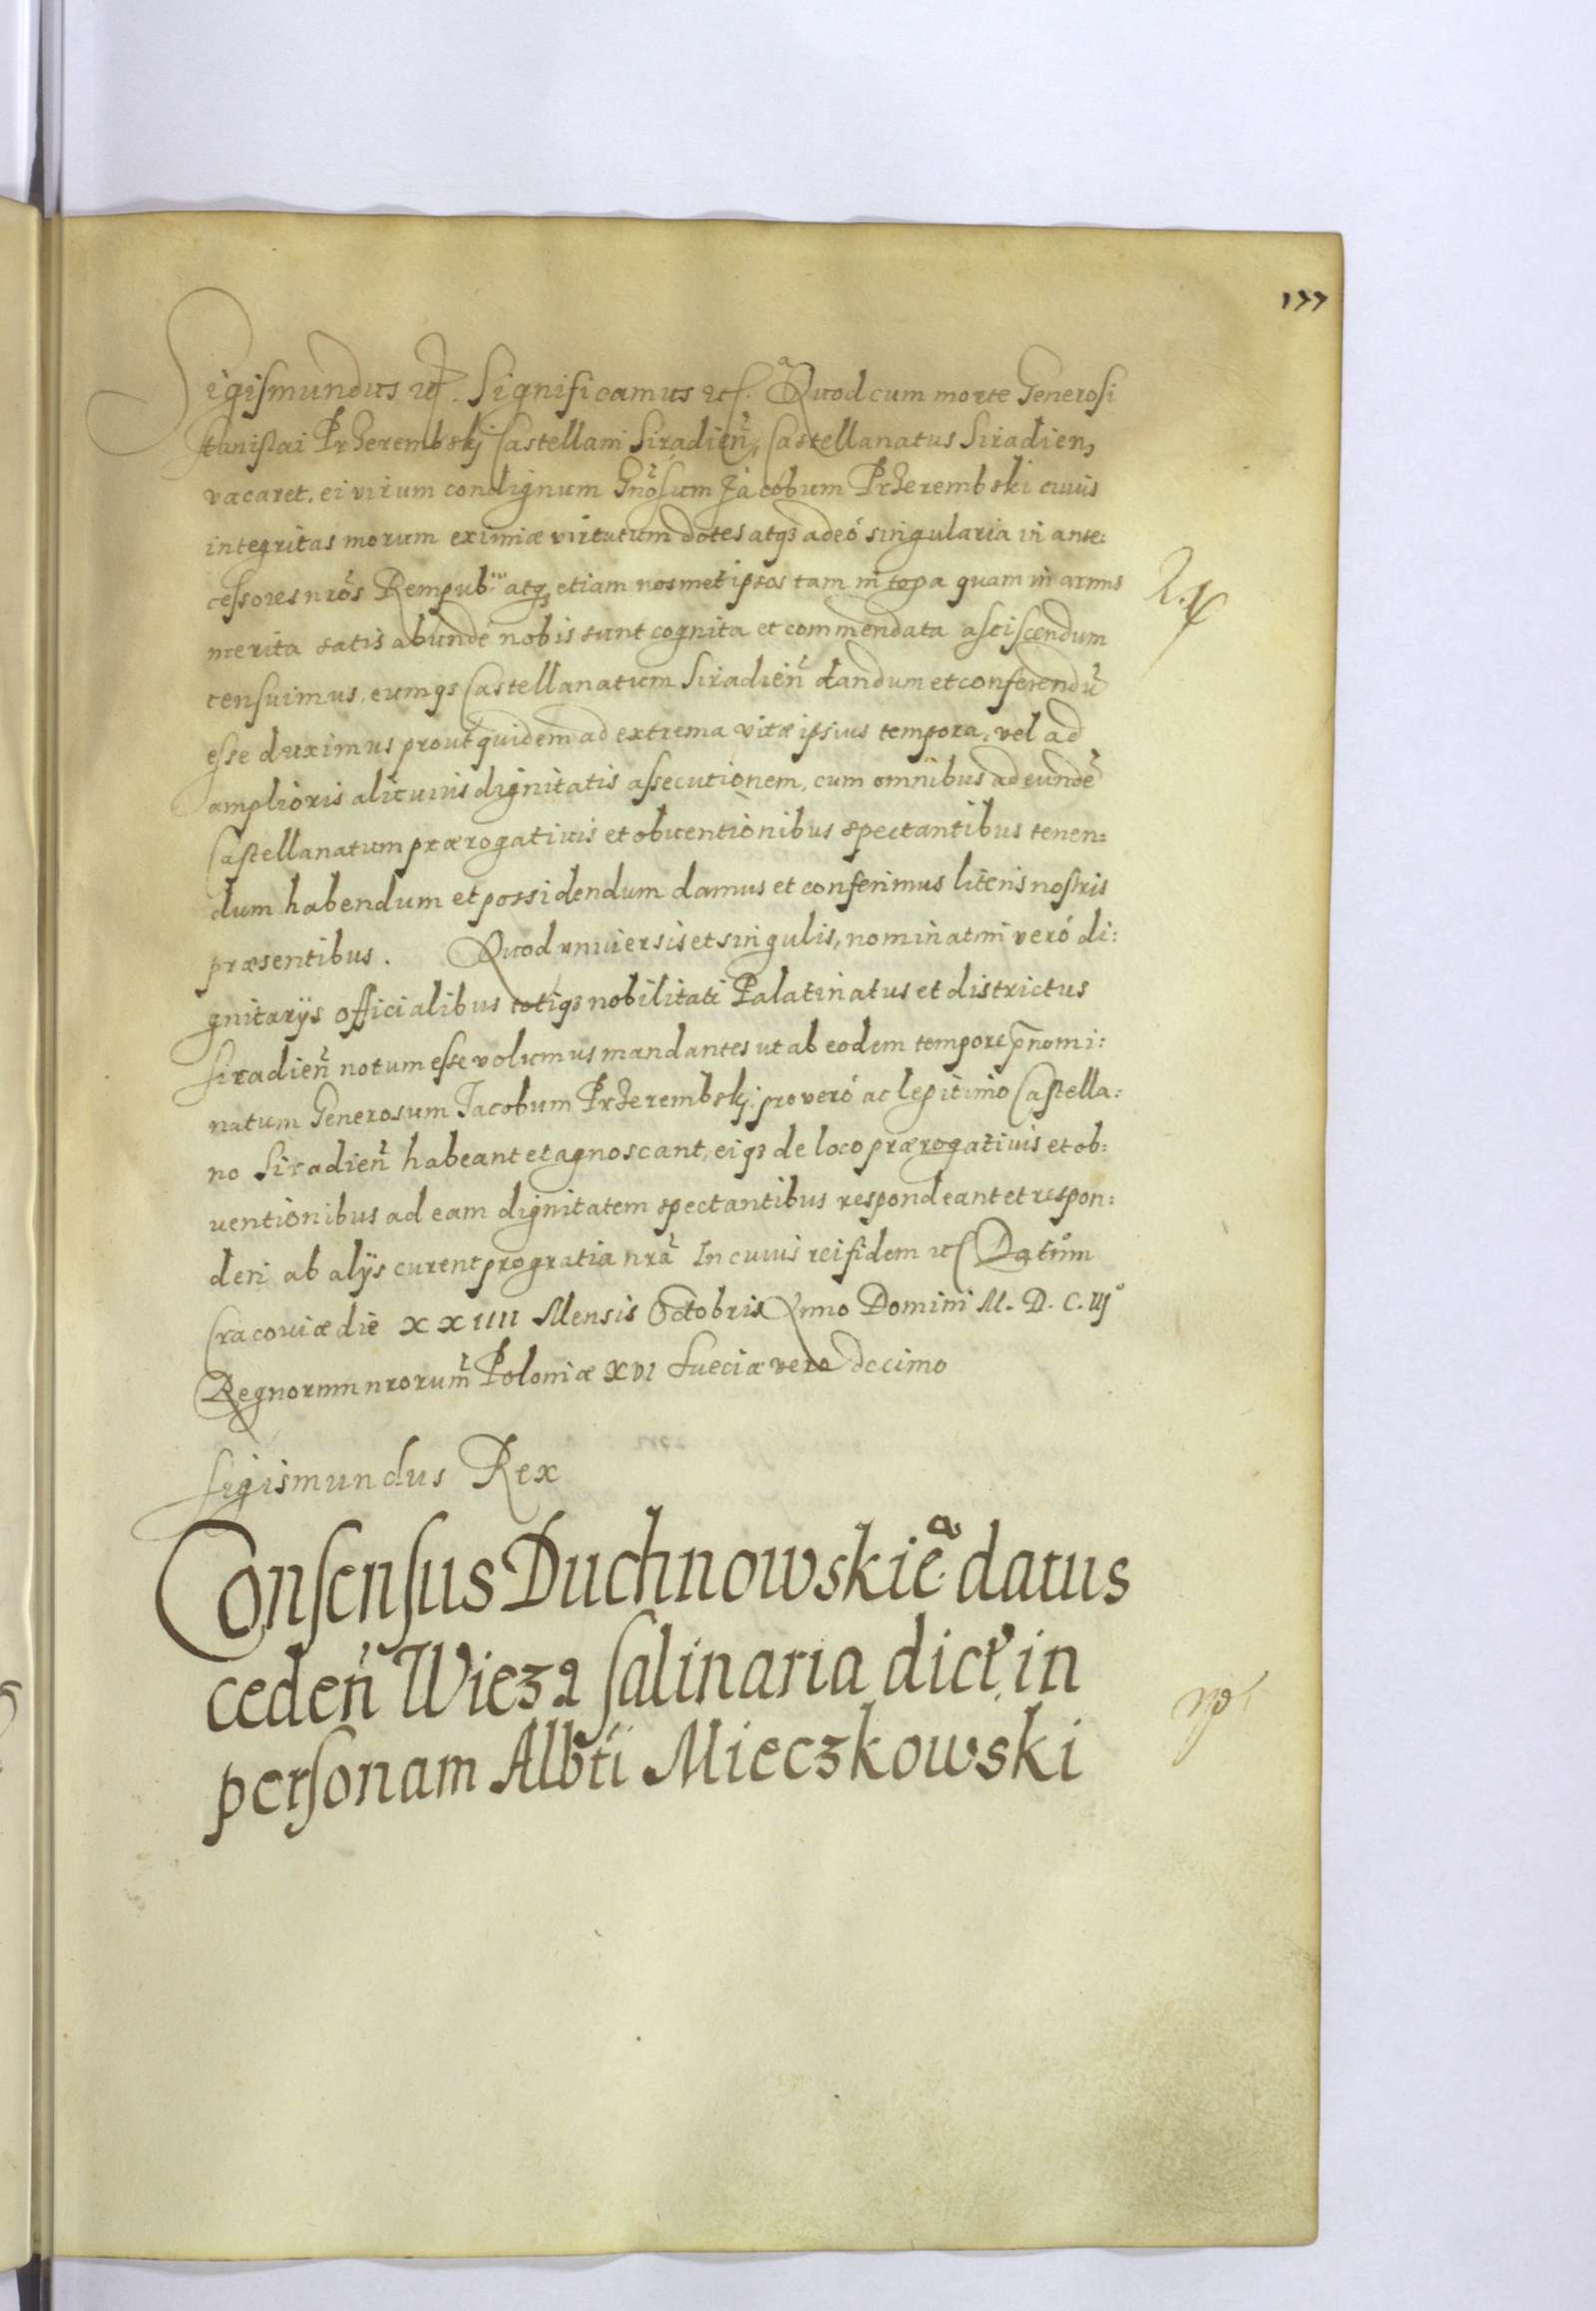 177
Sigismundus etc. Significamus etc. Quod cum morte Generosi
Stanislai Przerembskj Castellani Siradien̄, Castellanatus Siradien,
vacaret, ei virum condignum Gn̄osum Jacobum Przerembski cuius
integritas morum eximiæ virtutum dotes atq3 adeó singularia in ante:
cessores nr̄os Rempub: atq3 etiam nosmet ipsos tam in toga quam in armis
merita satis abundé nobis sunt cognita et commendata asciscendum
censuimus, eumq3 Castellanatum Siradien̄ dandum et conferendū
esse duximus prout quidem ad extrema vitæ ipsius tempora, vel ad
amplioris alicuius dignitatis assecutionem, cum omnibus ad eundē
Castellanatum prærogatiuis et obuentionibus spectantibus tenen:
dum habendum et possidendum damus et conferimus literis nostris
præsentibus. Quod vniuersis et singulis, nominatim veró di:
gnitarijs officialibus totiq3 nobilitati Palatinatus et districtus
Siradien̄ notum esse volumus mandantes ut ab eodem tempore p̄nomi:
natum Generosum Jacobum Przerembskj pro veró ac legitimo Castella:
no Siradien̄ habeant et agnoscant, eiq3 de loco prærogatiuis et ob:
uentionibus ad eam dignitatem spectantibus respondeant et respon:
deri ab alijs curent pro gratia nr̄a In cuius rei fidem etc Datum
Cracouiæ die XXIIII Mensis Octobris Anno Domini M. D. C. IIJ°
Regnorum nrorum̄ Poloniæ XVI Sueciæ vero decimo
Sigismundus Rex
Consensus Duchnowskiē datus
ceden̄ Wieza salinaria dict in
personam Alb̄ti Mieczkowski